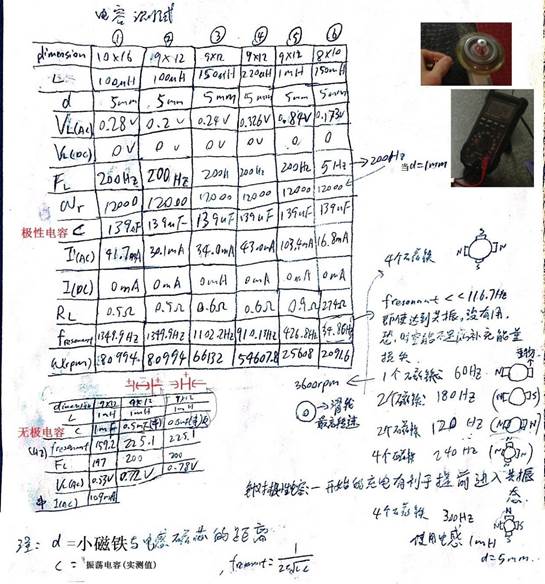 电容测试
① ② ③ ④ ⑤ ⑥
dimension 10×16 19×12 9×12 9×12 9×12 8×10
L 100uH 100uH 150uH 220uH 1mH 150mH
d 5mm 5mm 5mm 5mm 5mm 5mm
VL(AC) 0.28V 0.2V 0.24V 0.326V 0.84V 0.173V
VL(DC) 0V 0V 0V 0V 0V 0
FL 200Hz 200Hz 200H 200Hz 200Hz 5Hz →200Hz
当d=1mm
Wr 12000 12000 12000 12000 12000 12000
极性电容 C 139uF 139uF 139uF 139uF 139uF 139uF
I(AC) 41.7mA 30.1mA 34.0mA 43.0mA 103.4mA 16.8mA
I(DC) 0mA 0mA 0mA 0mA 0mA 0mA
RL 0.5Ω 0.5Ω 0.6Ω 0.6Ω 0.9Ω 274Ω
fresonant 1349.9Hz 1349.9Hz 1102.2Hz 910.1Hz 426.8Hz 34.86Hz
W(rpm) 80994 80994 66132 54607.8 25608 20916
4个磁铁
S N N S
fresonant << 116.7Hz
即使达到共振，没有用，
损失
3600rpm
→滑轮
最高转速
1个磁铁： 60Hz
2个磁铁： 180Hz
2个磁铁 120Hz
4个磁铁 240Hz
4个磁铁 300Hz
使用电感 1mH
d=5mm
dimension 9×12 9×12 9×12
L 1mH 1mH 1mH
无极电容 C 1mF
(Hz) fresonant 159.2 225.1 225.1
FL 197 200 200
VL(AC) 0.53V 0.72V 0.78V
I(AC) 109mA
针对极性电容：一开始的充电有利于提前进入共振态
注： d=小磁铁与电感磁芯的距离
C = 振荡电容(实测值) , fresonant = 1/2π√LC